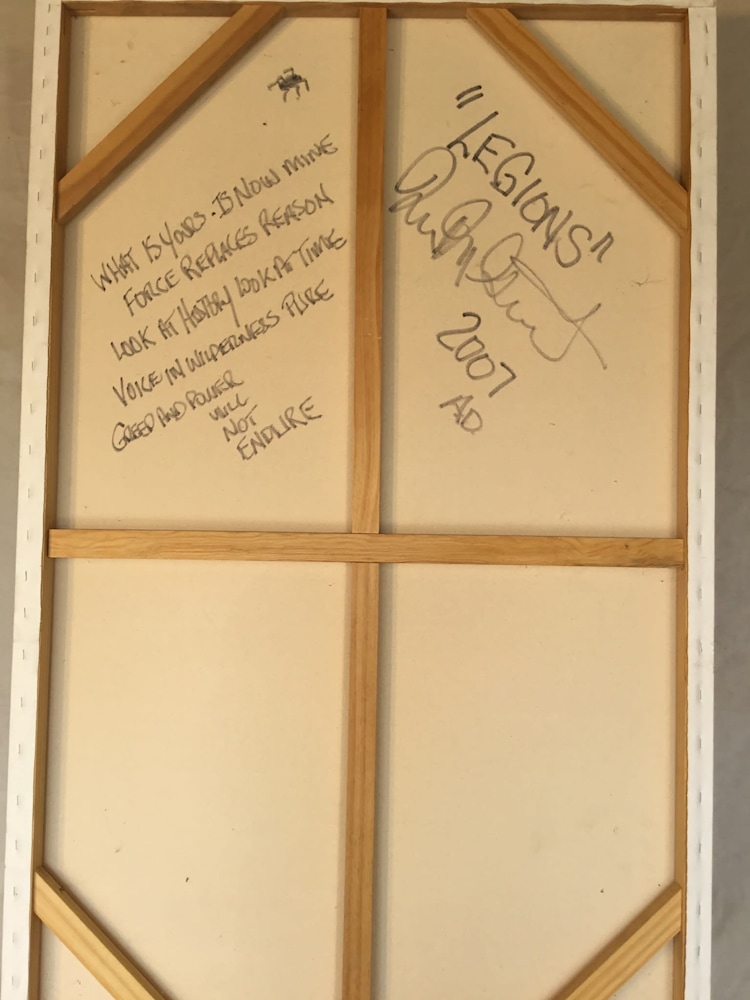 WHAT IS YOURS - IS NOW MINE
FORCE REPLACES REASON
LOOK AT HISTORY LOOK AT TIME
VOICE IN WILDERNESS PURE
GREED AND POWER
WILL
NOT
ENDURE
"LEGIONS"
2007
AD